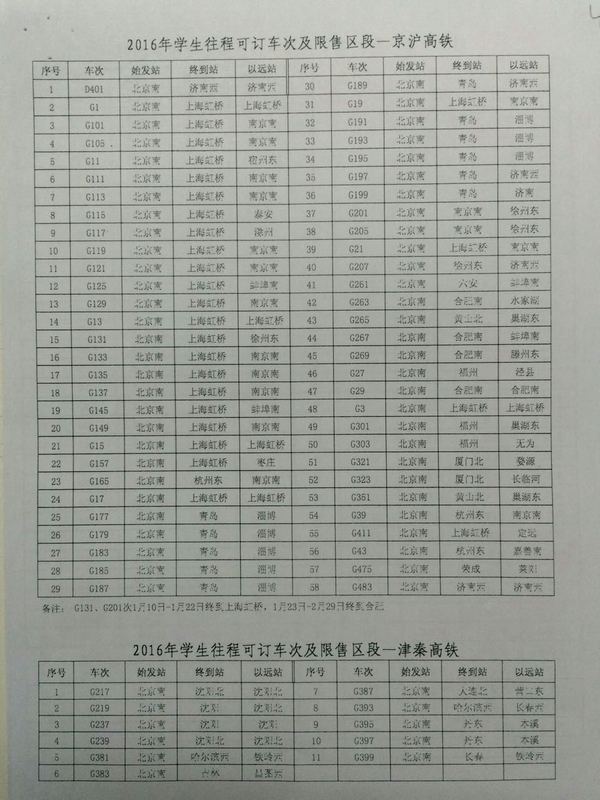 2016年学生往程可订车次及限售区段—京沪高铁
序号 车次 始发站 终到站 以远站
1 D401 北京南 济南西 济南西
2 G1 北京南 上海虹桥 上海虹桥
3 G101 北京南 上海虹桥 南京南
4 G105 北京南 上海虹桥 南京南
5 G11 北京南 上海虹桥 宿州东
6 G111 北京南 上海虹桥 南京南
7 G113 北京南 上海虹桥 南京南
8 G115 北京南 上海虹桥 泰安
9 G117 北京南 上海虹桥 滁州
10 G119 北京南 上海虹桥 南京南
11 G121 北京南 上海虹桥 南京南
12 G125 北京南 上海虹桥 蚌埠南
13 G129 北京南 上海虹桥 南京南
14 G13 北京南 上海虹桥 上海虹桥
15 G131 北京南 上海虹桥 徐州东
16 G133 北京南 上海虹桥 南京南
17 G135 北京南 上海虹桥 南京南
18 G137 北京南 上海虹桥 南京南
19 G145 北京南 上海虹桥 蚌埠南
20 G149 北京南 上海虹桥 南京南
21 G15 北京南 上海虹桥 上海虹桥
22 G157 北京南 上海虹桥 枣庄
23 G165 北京南 杭州东 南京南
24 G17 北京南 上海虹桥 上海虹桥
25 G177 北京南 青岛 淄博
26 G179 北京南 青岛 淄博
27 G183 北京南 青岛 淄博
28 G185 北京南 青岛 淄博
29 G187 北京南 青岛 淄博
序号 车次 始发站 终到站 以远站
30 G189 北京南 青岛 济南西
31 G19 北京南 上海虹桥 南京南
32 G191 北京南 青岛 淄博
33 G193 北京南 青岛 淄博
34 G195 北京南 青岛 淄博
35 G197 北京南 青岛 济南西
36 G199 北京南 青岛 济南
37 G201 北京南 南京南 徐州东
38 G205 北京南 南京南 徐州东
39 G21 北京南 上海虹桥 南京南
40 G207 北京南 徐州东 济南西
41 G261 北京南 六安 蚌埠南
42 G263 北京南 合肥南 水家湖
43 G265 北京南 黄山北 巢湖东
44 G267 北京南 合肥南 蚌埠南
45 G269 北京南 合肥南 滕州东
46 G27 北京南 福州 泾县
47 G29 北京南 合肥南 合肥南
48 G3 北京南 上海虹桥 上海虹桥
49 G301 北京南 福州 巢湖东
50 G303 北京南 福州 无为
51 G321 北京南 厦门北 婺源
52 G323 北京南 厦门北 长临河
53 G351 北京南 黄山北 巢湖东
54 G39 北京南 杭州东 南京南
55 G411 北京南 上海虹桥 定远
56 G43 北京南 杭州东 嘉善南
57 G475 北京南 荣成 莱阳
58 G483 北京南 济南西 济南西
备注: G131、G201次1月10日-1月22日终到上海虹桥，1月23日-2月29日终到合肥
2016年学生往程可订车次及限售区段—津秦高铁
序号 车次 始发站 终到站 以远站
1 G217 北京南 沈阳北 沈阳北
2 G219 北京南 沈阳北 沈阳北
3 G237 北京南 沈阳北 沈阳北
4 G239 北京南 沈阳北 沈阳北
5 G381 北京南 哈尔滨西 铁岭西
6 G383 北京南 吉林 昌图西
序号 车次 始发站 终到站 以远站
7 G387 北京南 大连北 营口东
8 G393 北京南 哈尔滨西 长春西
9 G395 北京南 丹东 本溪
10 G397 北京南 丹东 本溪
11 G399 北京南 长春 铁岭西